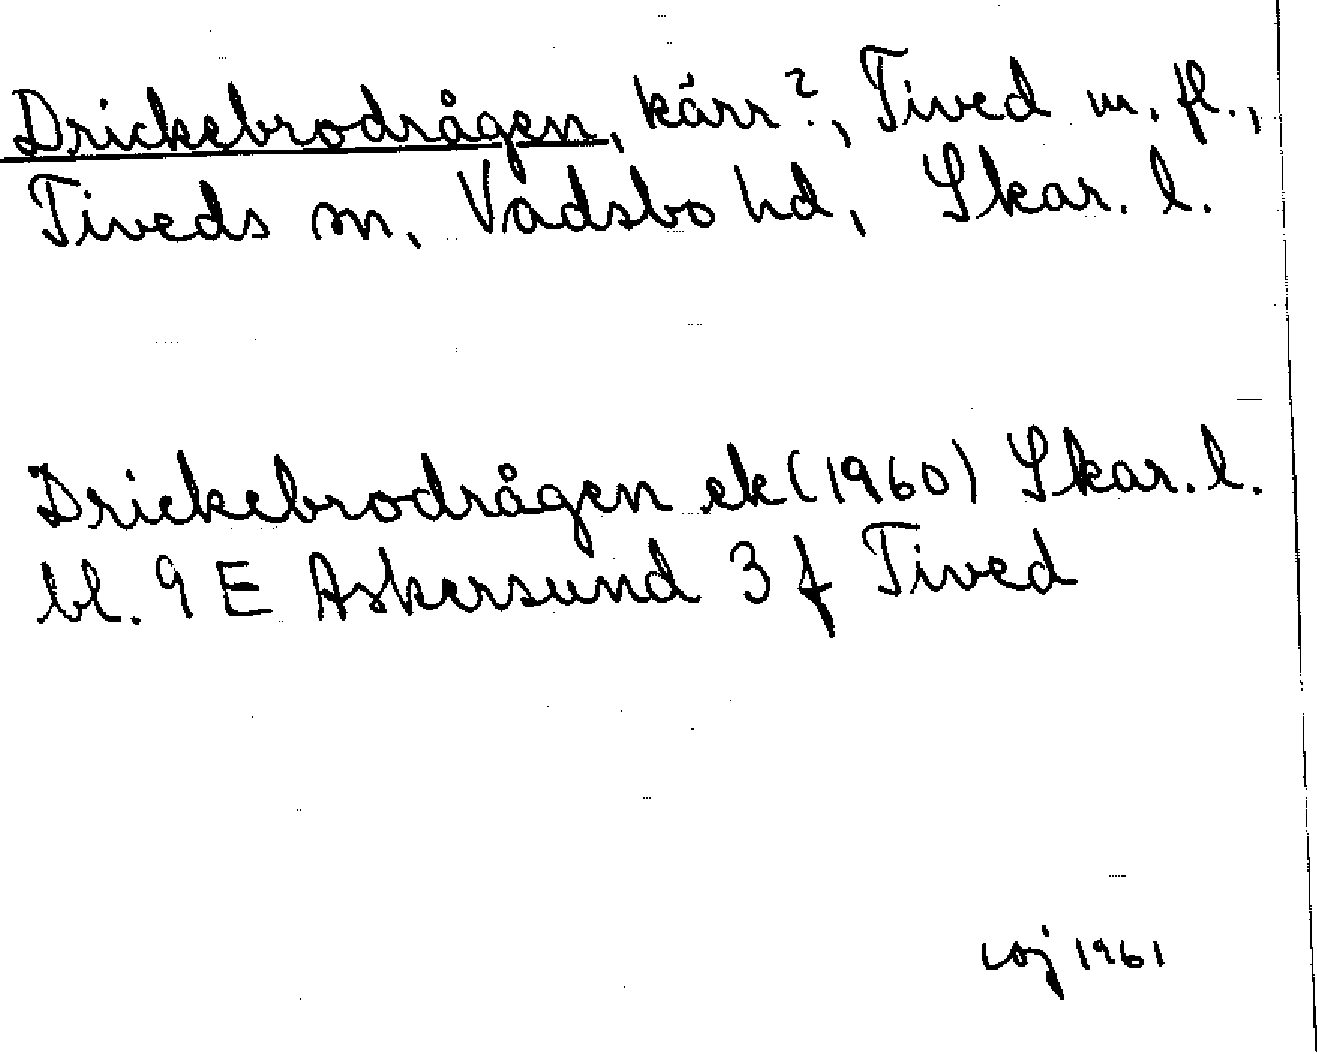 Drickebrodrågen, kärr?, Tived m. fl.,
Tiveds sn, Vadsbo hd, Skar. l.
Drickebrodrågen ek (1960) Skar. l.
bl. 9 E Askersund 3 f Tived
1961